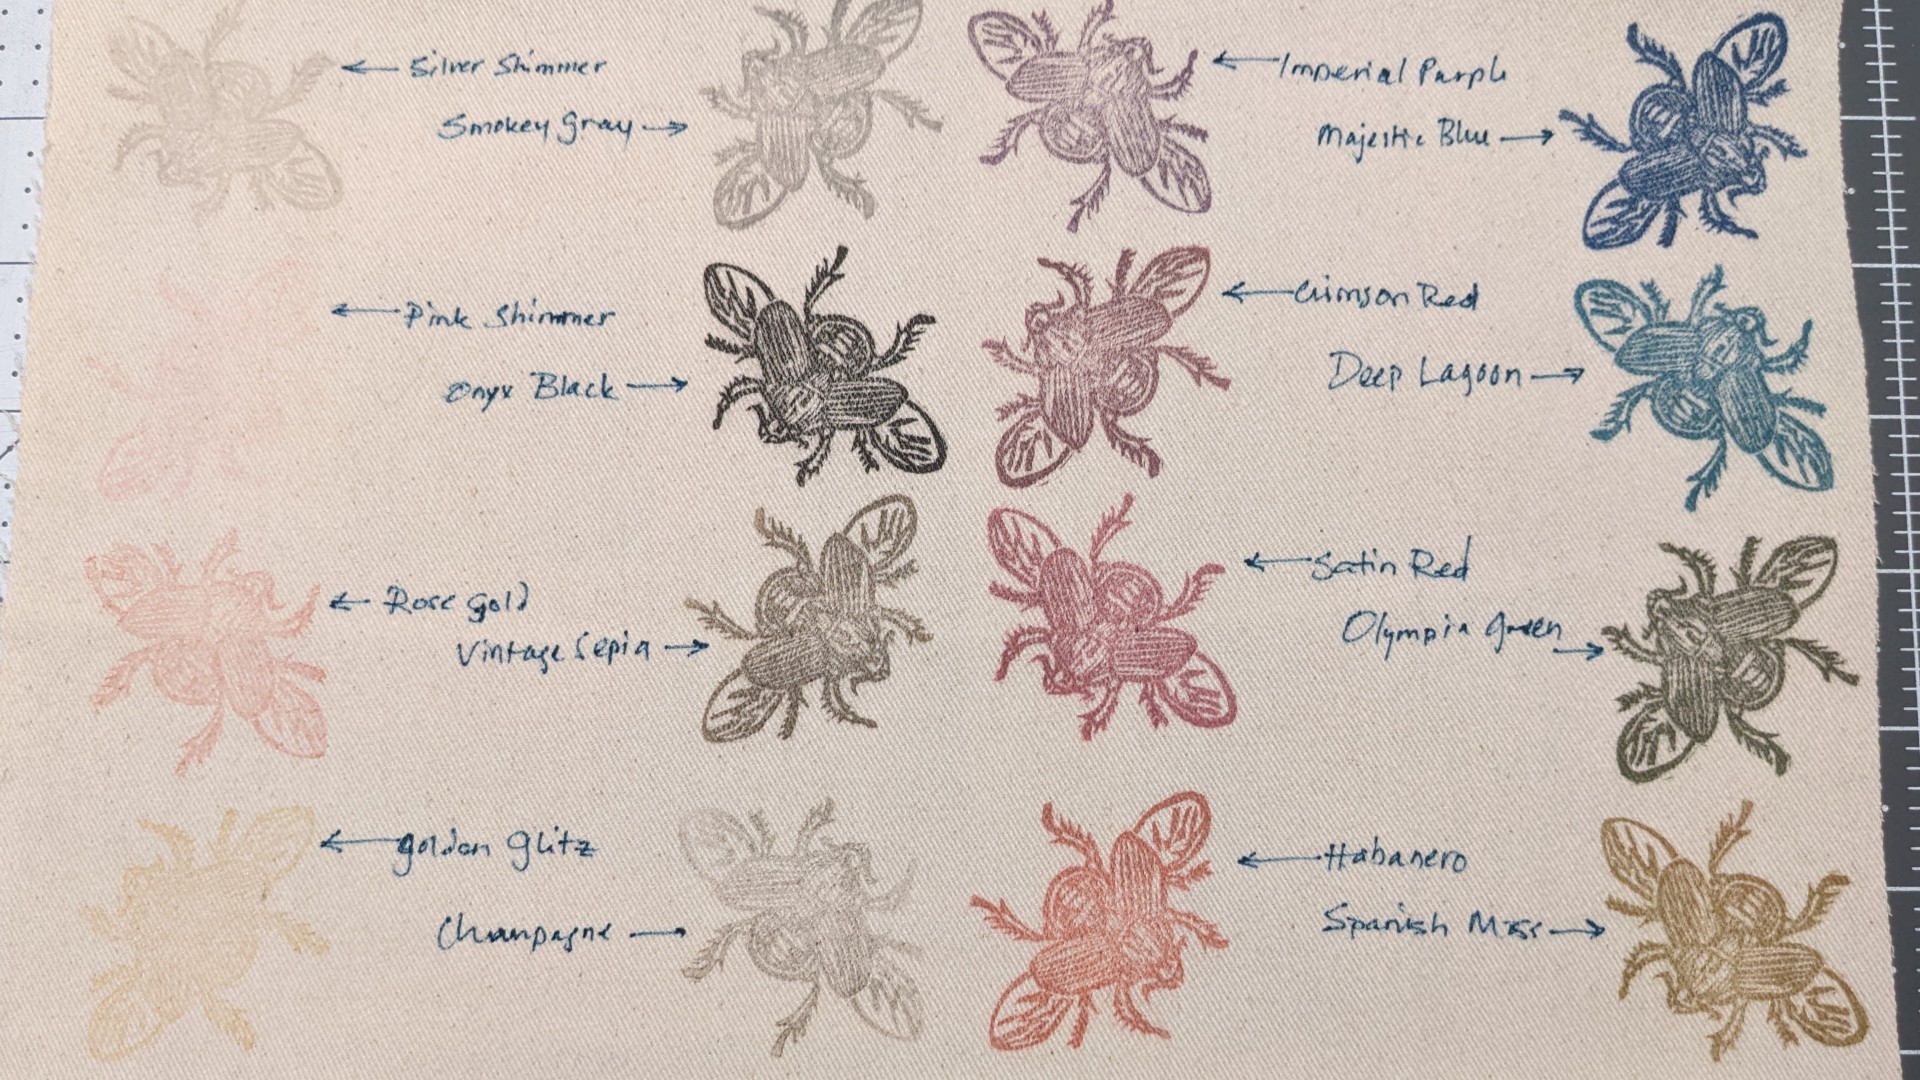 Silver Shimmer
Smokey Gray
Imperial Purple
Majestic Blue
Pink Shimmer
Onyx Black
Crimson Red
Deep Lagoon
Rose Gold
Vintage Sepia
Satin Red
Olympia Green
Golden Glitz
Champagne
Habanero
Spanish Moss